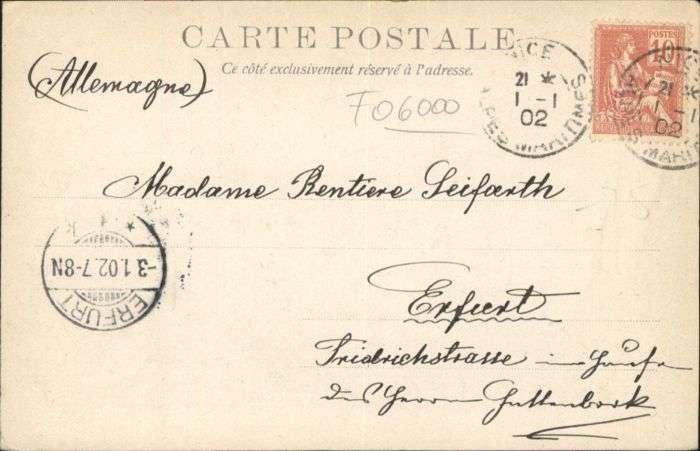 CARTE POSTALE
Ce côté exclusivement réservé à l'adresse.
(Allemagne)
F06000
NICE
21 *
1 - 1
02
ALPES MARITIMES
POSTES
10
21 *
1 - 1
02
Madame Rentiere Seifarth
-3.1.02.7-8N
ERFURT
Erfurt
Fridrichstrasse im Hause
des Herrn Guttenbork